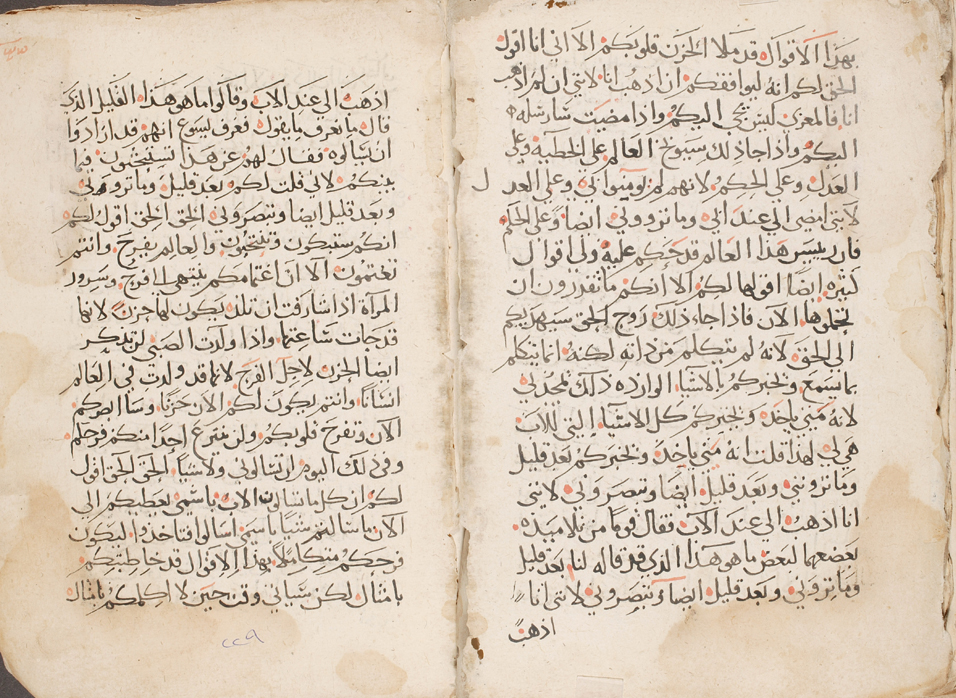 بهذا الاقوال قد ملا الحزن قلوبكم الا اني انا اقول
الحق لكم انه ليوافقكم ان اذهب انا لانني ان لم اذهب
انا فالمعزي ليس يجي اليكم واذا مضيت سارسله
اليكم واذا جا ذلك سيوبخ العالم على الخطيه وعلى
العدل وعلى الحكم لانهم لم يومنوا بي وعلى العدل
لانني امضي الى عند ابي وما تروني ايضا وعلى الحكم
فان ريس هذا العالم قد حكم عليه ولي اقوال
كثيره ايضا اقولها لكم الا انكم ما تقدرون ان
تحملوها الان فاذا جاء ذلك روح الحق سيهديكم
الى الحق لانه لم يتكلم من ذاته لكنه انما يتكلم
بما يسمع ويخبركم بالاشيا الوارده ذلك يمجدني
لانه مني ياخذ ويخبركم كل الاشياء التي للاب
هي لي لهذا قلت انه مني ياخذ ويخبركم بعد قليل
وما تروني وبعد قليل ايضا وتبصروني لانني
انا اذهب الى عند الاب فقال قوما من تلاميده
بعضهما لبعض ما هو هذا الذي قد قاله لنا بعد قليل
وما تروني وبعد قليل ايضا وتبصروني لانني انا
اذهب
اذهب الى عند الاب وقالوا ما هو هذا القليل الذي
قال ما نعرف ما يقول فعرف يسوع انهم قد ارادوا
ان يسالوه فقال لهم عن هذا تستبحثون فيما
بينكم لاني قلت لكم بعد قليل وما تروني
وبعد قليل ايضا وتبصروني الحق الحق اقول لكم
انكم ستبكون وتنتحبون والعالم يفرح وانتم
تغتمون الا ان اغتمامكم ينتهي الى فرح وسرور
المراة اذا شارفت ان تلد يكون لها حزن لانها
قد جات ساعتها واذا ولدت الصبي لن تذكر
ايضا الحزن لاجل الفرح لانها قد ولدت في العالم
انسانا وانتم يكون لكم الان حزنا وسا ابصركم
الان وتفرح قلوبكم ولن ينتزع احدا منكم فرحكم
وفي ذلك اليوم لن تسالوني ولا شيا الحق الحق اقول
لكم ان كل ما تسالون الاب باسمي يعطيكم الى
الان ما سالتم شيا باسمي اسالوا فتاخذوا ليكون
فرحكم متكاملا بهذا الاقوال قد خاطبتكم
بامثال لكن سياتي وقت حين لا اكلمكم بامثال
٢٢٩